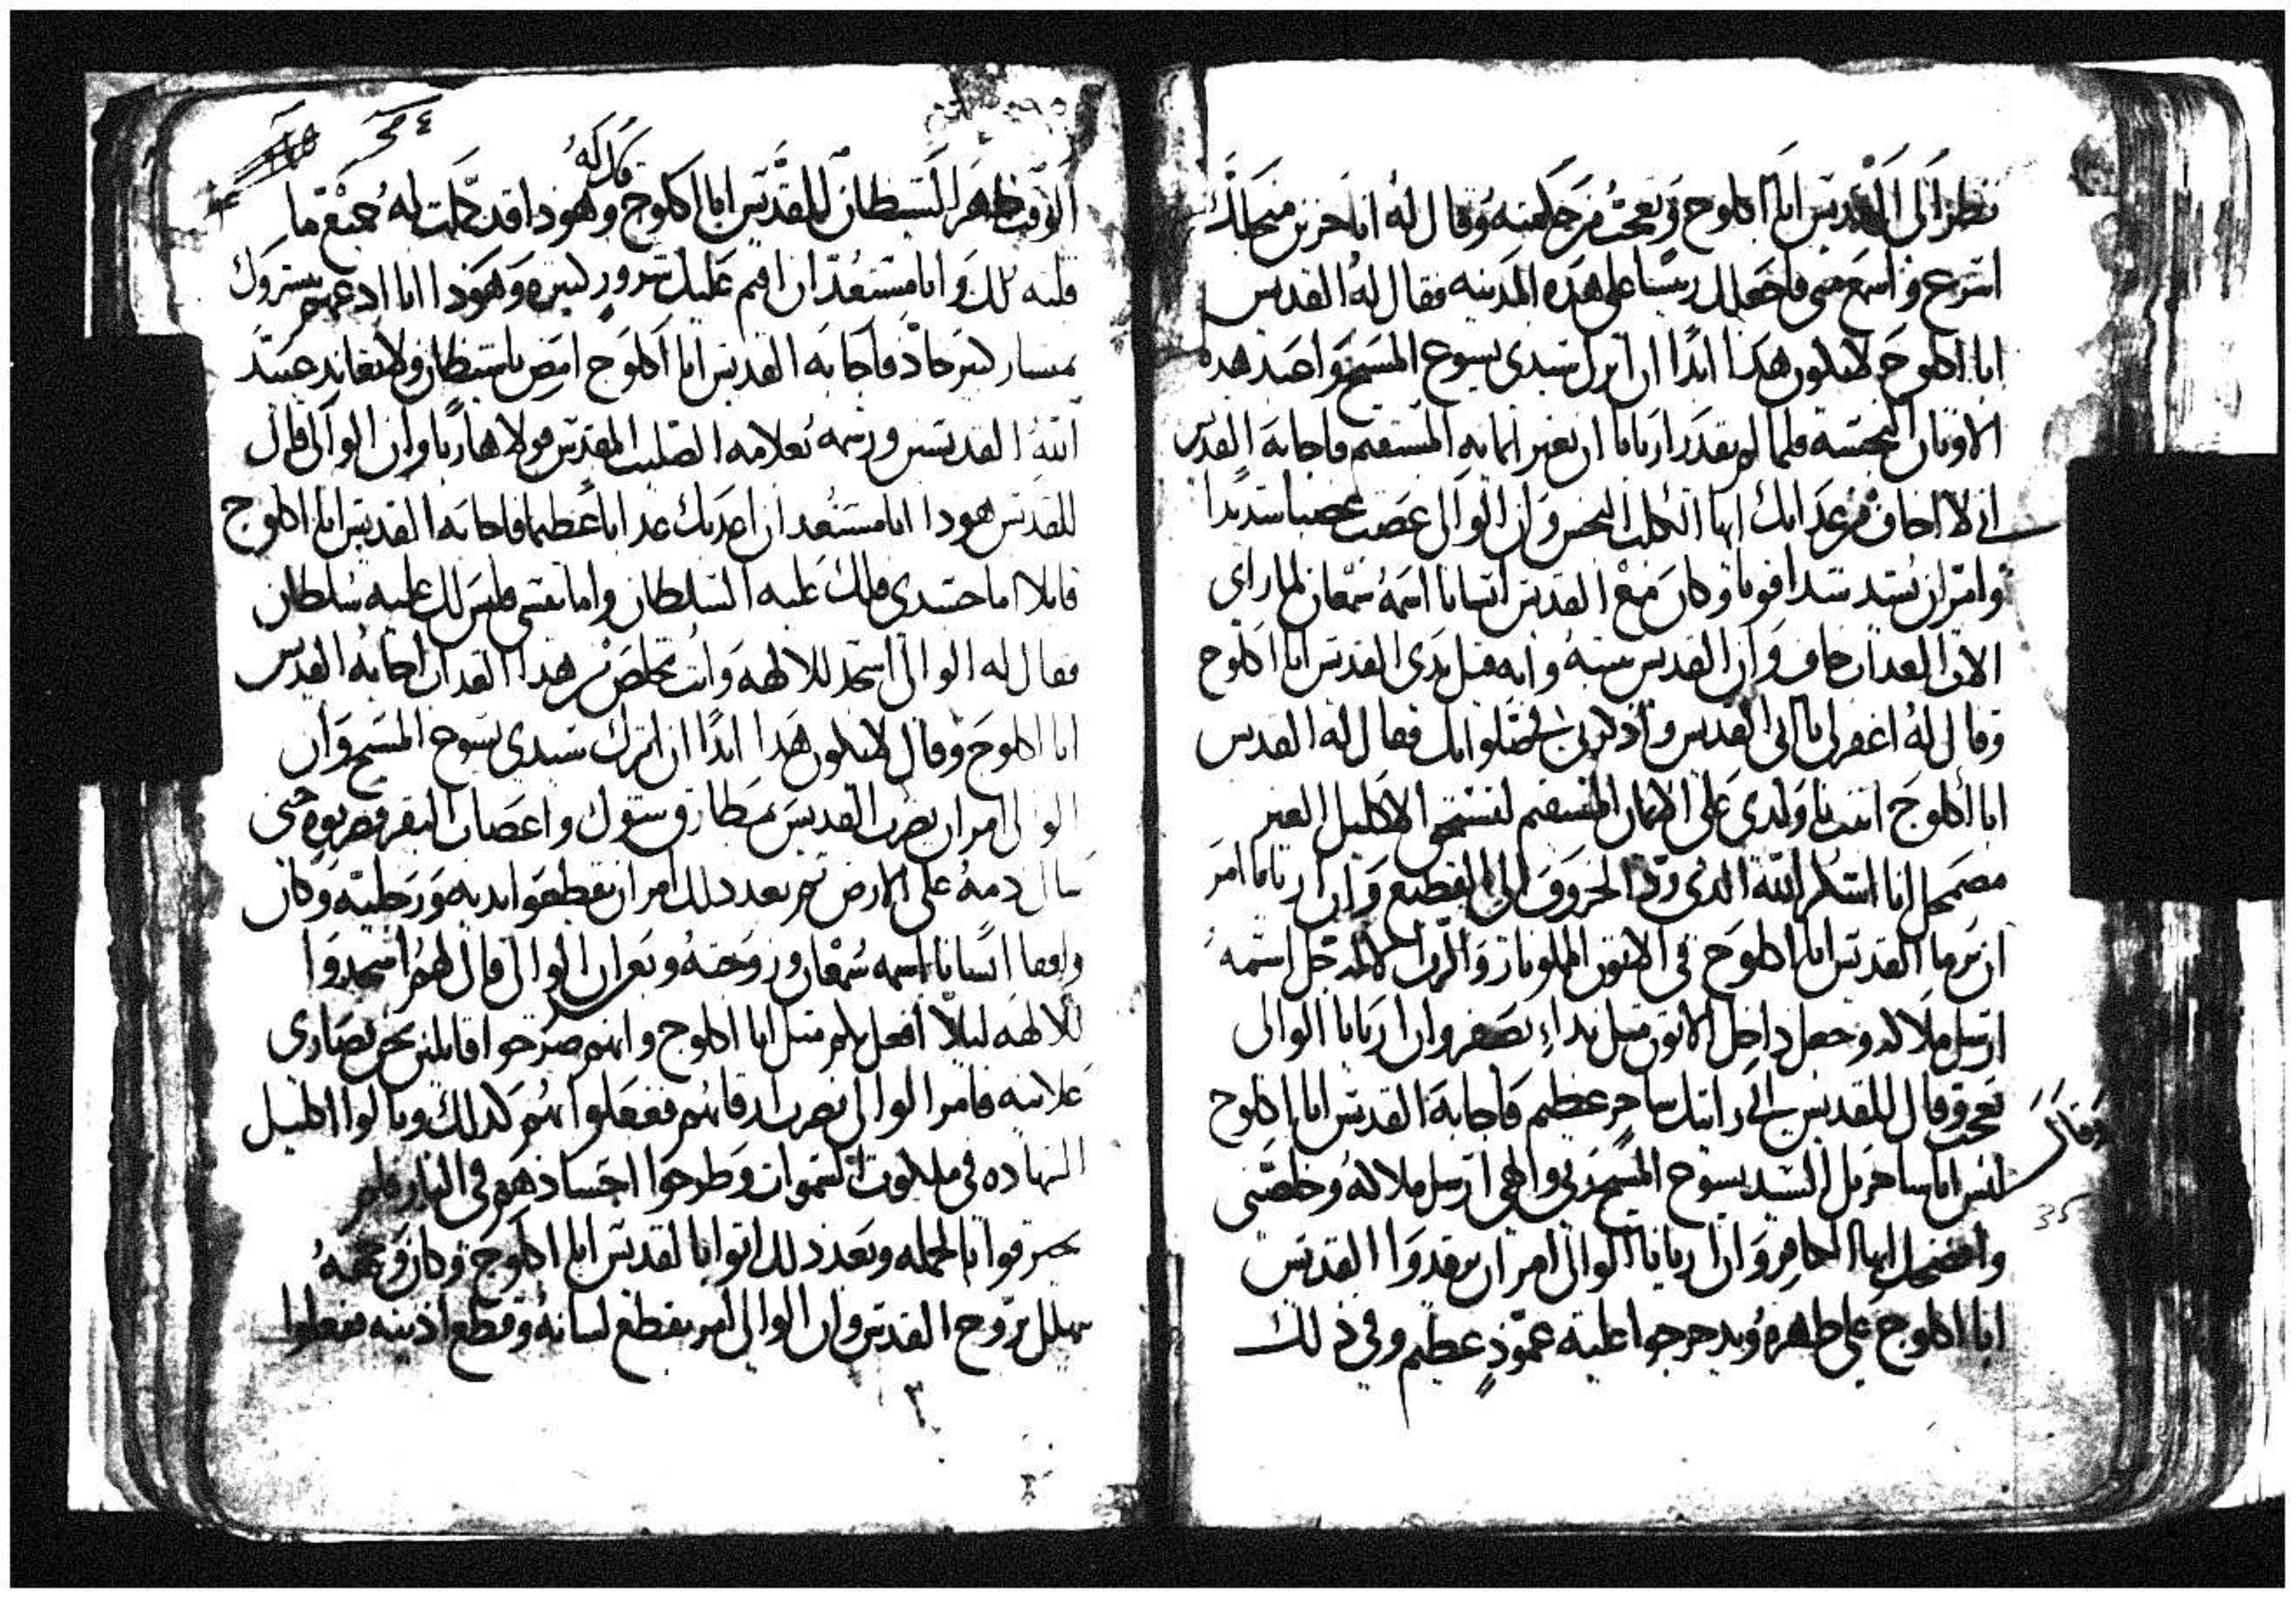 نظر الى القديس ابا اكلوج وتعجب من جماعته وقال له انا حزين من جالك
اسرع واسمع مني فاجعلك ريسا على هذه المدينه فقال له القديس
ابا اكلوج لا يكون هذا ابدا ان اترك سيدي يسوع المسيح واصد هده
الاوتان النجسه فلما لم يقدر اريانا ان يغير امانه المستقيم فاجابه القديس
اني لا اخاف من عدابك ايها الكلب النجس وان الوالي غضب غضبا شديدا
وامر ان يشد شدا قويا وكان مع القديس انسانا اسمه شمعان لما راى
الان العداب خاف وان القديس ثبته وانه قبل يدي القديس ابا اكلوج
وقال له اغفر لي يا ابي القديس واذكرني في صلواتك فقال له القديس
ابا اكلوج اثبت يا ولدي على الايمان المستقيم لتستحق الاكليل الغير
مضمحل انا اشكر الله الذي رد الخروف الى القطيع وان اريانا امر
ان يرما القديس ابا اكلوج في الاتون المملو نار والرب لاجل اسمه
ارسل ملاكه وجعل داخل الاتون مثل نداء يصفر وان اريانا الوالي
تعجب وقال للقديس اني رايتك ساحر عظيم فاجابه القديس ابا اكلوج
وقال
ليس انا ساحر بل السيد يسوع المسيح ربي والهي ارسل ملاكه وخلصني
35
وافضحك ايها الكافر وان اريانا الوالي امر ان يرقدوا القديس
ابا اكلوج على ظهره ويدحرجوا عليه عمود عظيم وفي ذلك
قال له
الوقت ظهر الشيطان للقديس ابا اكلوج وهوذا قد كملت له جميع ما
قلته لك وانا مستعد ان اقيم عليك شرور كثيره وهوذا انا ادعهم يسمروك
بمسار كبير حاد فاجابه القديس ابا اكلوج امض يا شيطان ولا تعاند جسد
الله القديس ورشمه بعلامه الصليب المقدس فولا هاربا وان الوالي قال
للقديس هودا انا مستعد ان اعدبك عدابا عظيما فاجابه القديس ابا اكلوج
قايلا اما جسدي فلك عليه السلطان واما نفسي فليس لك عليه سلطان
فقال له الوالي اسجد للالهه وانت تخلص من هدا العداب اجابه القديس
ابا اكلوج وقال لا يكون هدا ابدا ان اترك سيدي يسوع المسيح وان
الوالي امر ان يضرب القديس بمطارق وشوك واعصاب البقر فضربوه حتى
سال دمه على الارض ثم بعد دلك امر ان يقطعوا يديه ورجليه وكان
واقفا انسانا اسمه شمعان وزوجته وبعر ان الوالي قال لهم اسجدوا
للالهه ليلا افعل بكم مثل ابا اكلوج وانهم صرخوا قايلين نحن نصارى
علانيه فامر الوالي بضرب ارقابهم ففعلوا بهم كدلك ونالوا اكليل
الشهاده في ملكوت السموات وطرحوا اجسادهم في النار فلم
يحترقوا بالجمله وبعد دلك اتوا بالقديس ابا اكلوج وكان وجهه
يهلل بروح القدس وان الوالي امر بقطع لسانه وقطع اذنيه ففعلوا